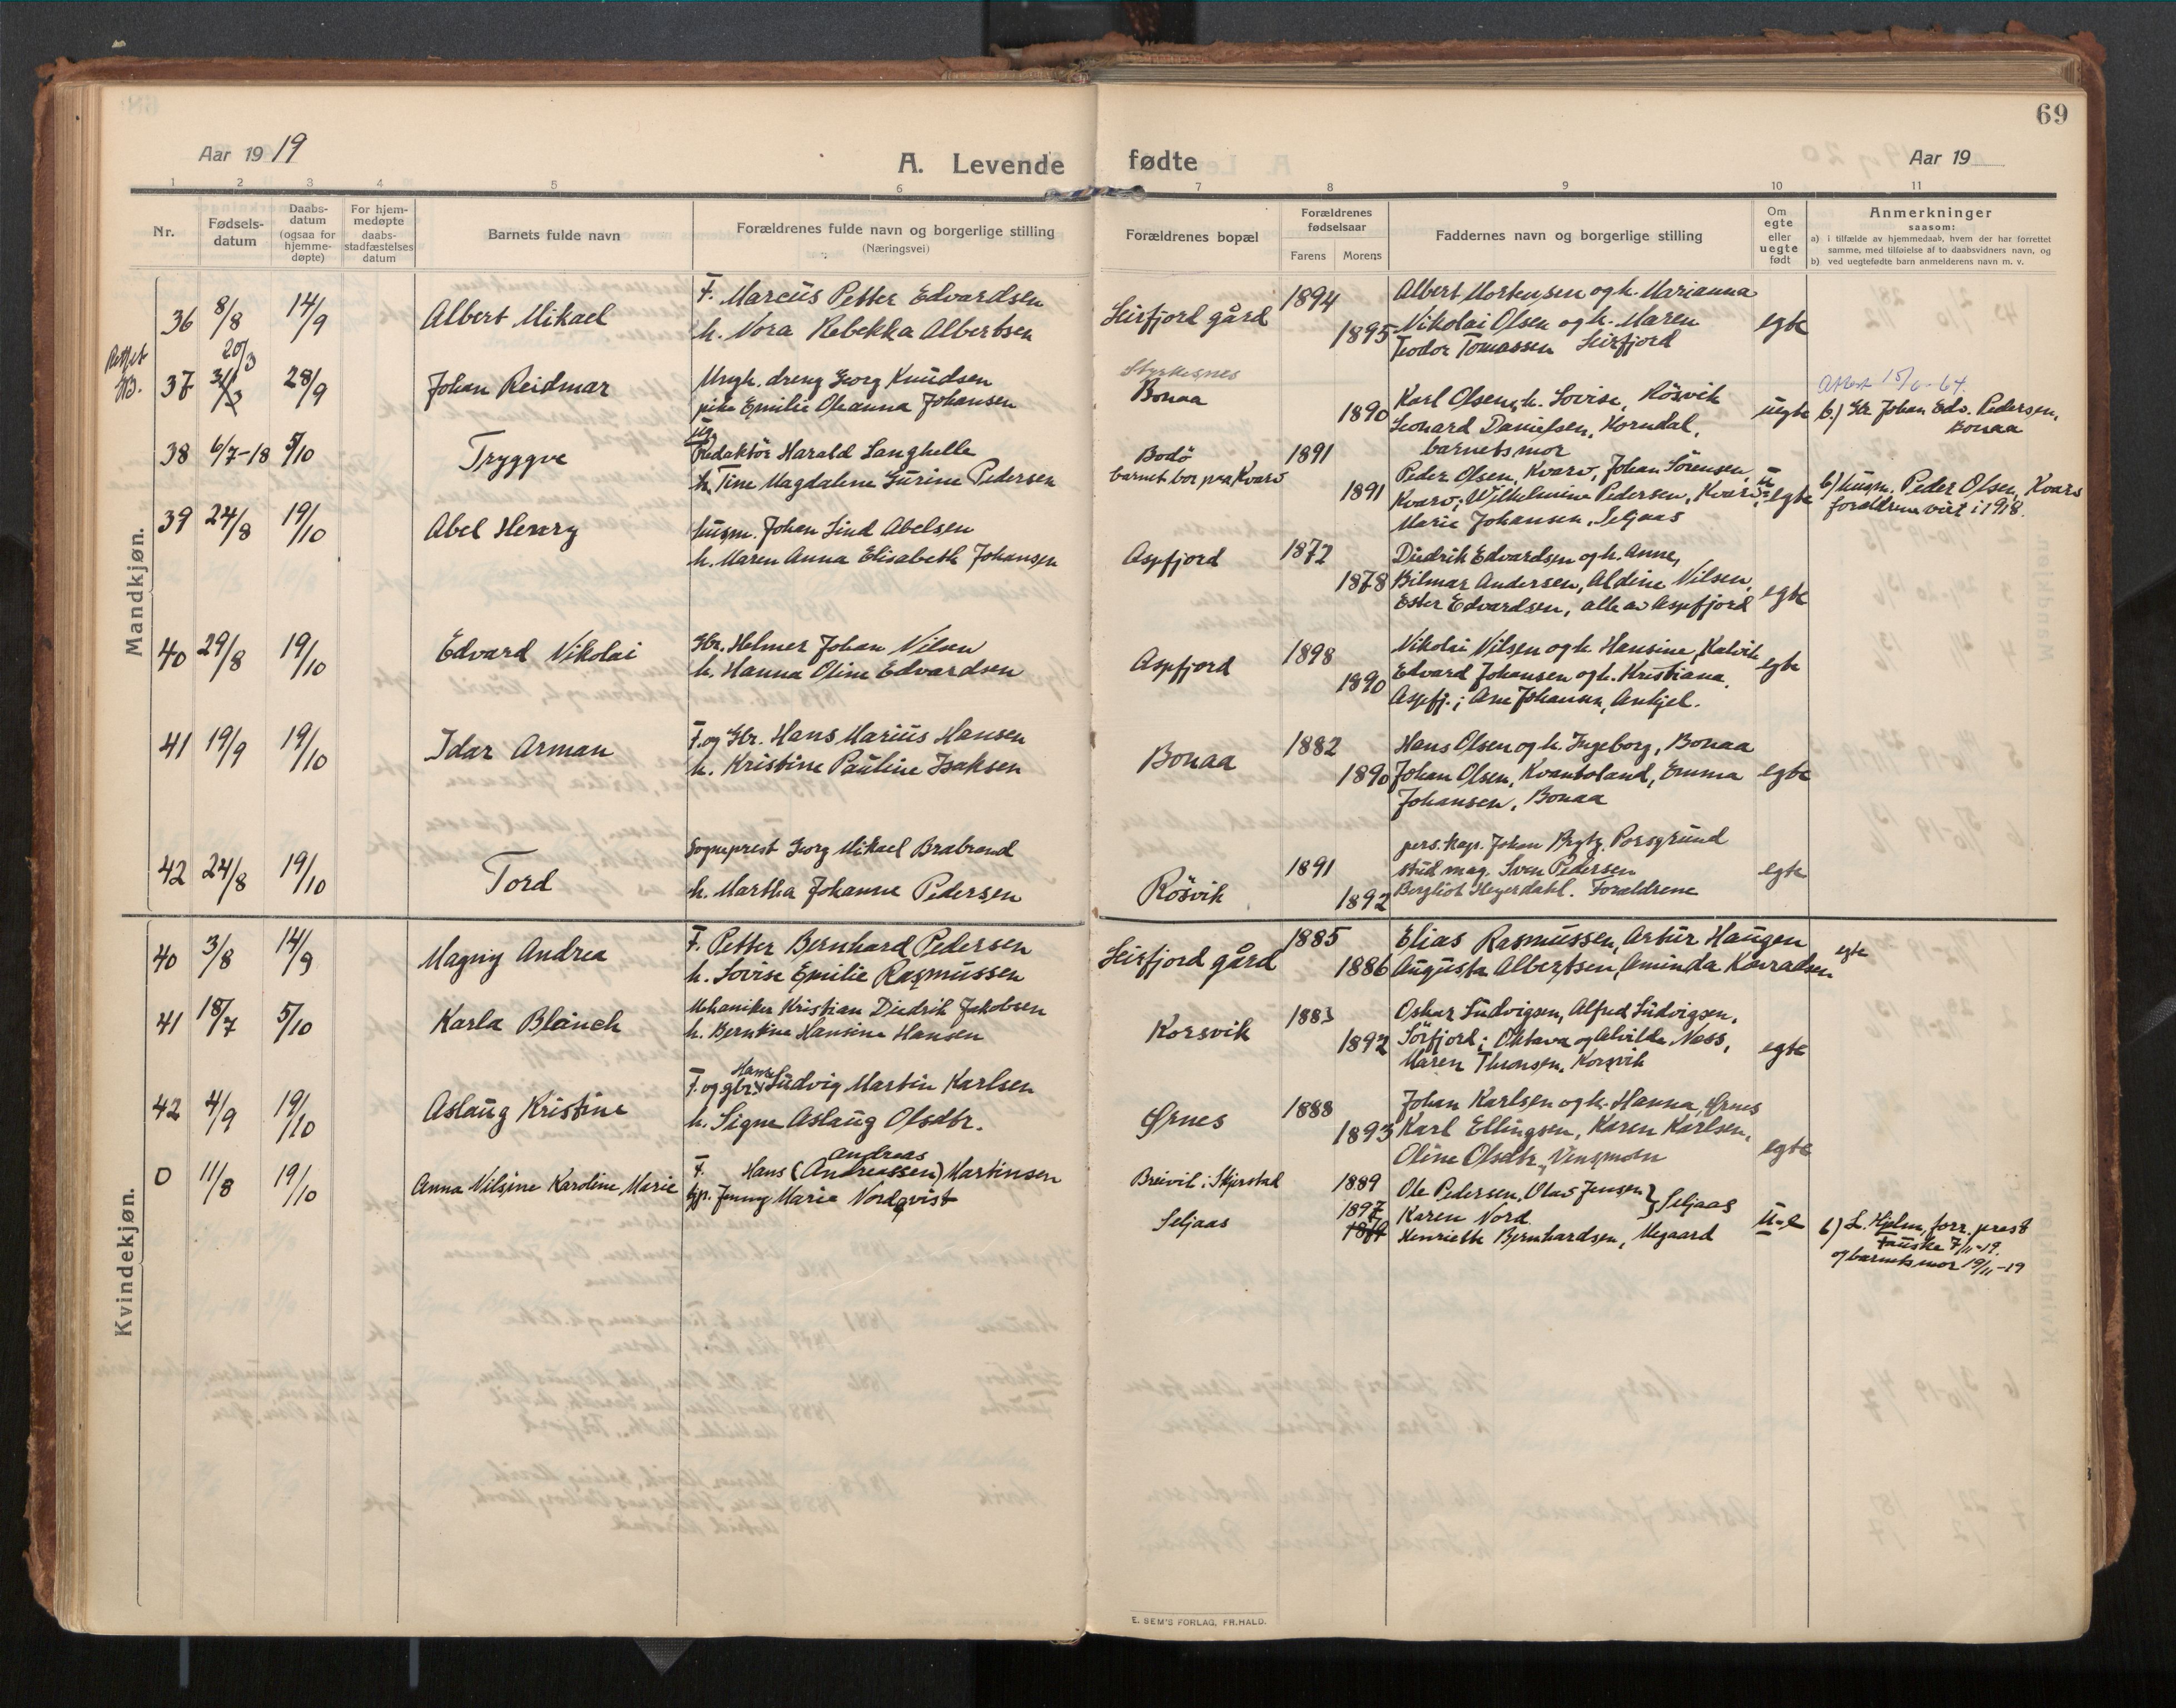 69
Aar 1919
A. Levende fødte
Aar 19
1 2 3 4 5 6 7 8 9 10 11
Nr.
Fødsels-
datum
Daabs-
datum
(ogsaa for
hjemme-
døpte)
For hjem-
medøpte
daabs-
stadfæstelses
datum
Barnets fulde navn
Forældrenes fulde navn og borgerlige stilling
(Næringsvei)
Forældrenes bopæl
Forældrenes
fødselsaar
Farens Morens
Faddernes navn og borgerlige stilling
Om
egte
eller
uegte
født
Anmerkninger
saasom:
a) i tilfælde av hjemmedaab, hvem der har forrettet
samme, med tilføielse af to daabsvidners navn, og
b) ved uegtefødte barn anmelderens navn m. v.
Mandkjøn.
36 8/8 14/9 Albert Mikael
F. Marcus Petter Edvardsen
h. Nora Rebekka Albertsen
Leirfjord gård 1894 1895
Albert Mortensen og h. Marianna
Nikolai Olsen og h. Maren
Teodor Tomassen Leirfjord
egte
Rettet
37 20/3 31/3 28/9 Johan Reidmar
Ungk. dreng Georg Knudsen
pike Emilie Oleanna Johansen
Styrkesnes
Bonaa 1890
Karl Olsen, h. Lovise, Rösvik
Leonard Danielsen, Korndal,
barnets mor
uegte
Attest 15/6-64.
b) Gbr Johan Edv. Pedersen,
Bonaa
38 6/7-18 5/10 Tryggve
ug.
Redaktör Harald Langhelle
h. Tine Magdalene Gurine Pedersen
Bodö
barnet bor paa Kvarv
1891 1891
Peder Olsen, Kvarv, Johan Sörensen,
Kvarv; Wilhelmine Pedersen, Kvarv;
Marie Johansen, Seljaas
u-egte
b) husm. Peder Olsen, Kvarv
forældrene viet i 1918.
39 24/8 19/10 Abel Henry
husm. Johan Lind Abelsen
h. Maren Anna Elisabeth Johansen
Aspfjord 1872 1878
Diedrik Edvardsen og h. Anne,
Hilmar Andersen, Aldine Nilsen,
Ester Edvardsen, alle av Aspfjord
egte
40 29/8 19/10 Edvard Nikolai
Gbr. Helmer Johan Nilsen
h. Hanna Oline Edvardsen
Aspfjord 1898 1890
Nikolai Nilsen og h. Hansine, Kalvik
Edvard Johansen og h. Kristiana,
Aspfj.; Ane Johansen, Ankjel.
egte
41 19/9 19/10 Idar Arman
F. og Gbr. Hans Marius Hansen
h. Kristine Pauline Isaksen
Bonaa 1882 1890
Hans Olsen og h. Ingeborg, Bonaa
Johan Olsen, Kvantoland, Emma
Johansen, Bonaa
egte
42 24/8 19/10 Tord
Sogneprest Georg Mikael Brabrand
h. Martha Johanne Pedersen
Rösvik 1891 1892
pers. kap. Johan Brytz, Porsgrund
stud mag. Sven Pedersen
Bergliot Heyerdahl. Forældrene
egte
Kvindekjøn.
40 3/8 14/9 Magny Andrea
F. Petter Bernhard Pedersen
h. Lovise Emilie Rasmussen
Leirfjord gård 1885 1886
Elias Rasmussen, Artur Haugen
Augusta Albertsen, Aminda Konradsen
egte
41 18/7 5/10 Karla Blanch
Mekaniker Kristian Diedrik Jakobsen
h. Berntine Hansine Hansen
Korsvik 1883 1892
Oskar Ludvigsen, Alfred Ludvigsen,
Sörfjord; Oktava og Alvilda Ness,
Maren Thomsen, Korsvik
egte
42 4/9 19/10 Aslaug Kristine
Hans
F. og gbr. Ludvig Martin Karlsen
h. Signe Aslaug Olsdtr.
Ørnes 1888 1893
Johan Karlsen og h. Hanna, Ørnes
Karl Ellingsen, Karen Karlsen,
Oline Olsdtr., Vensmoen
egte
0 11/8 19/10 Anna Nilsine Karoline Marie
Andreas
F. Hans (Andreassen) Martinsen
tjp. Jenny Marie Nordqvist
Breivik i Skjerstad
Seljaas
1889 1897
Ole Pedersen, Olav Jensen } Seljaas
Karen Nord.
Henriette Bernhardsen, Megaard
u-e
b) L. Hjelm, forr. prest
Fauske 7/11-19.
og barnets mor 19/11-19
E. SEM'S FORLAG, FR.HALD.